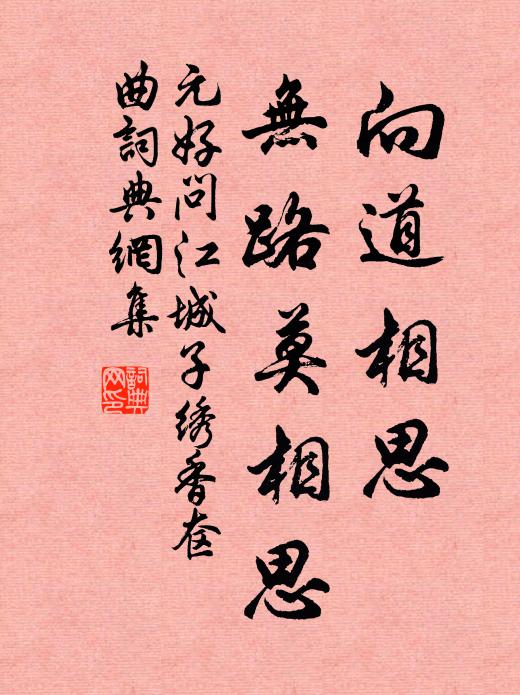 向道相思
無路莫相思
元好问江城子绣香奁
曲詞典網集
詞典网印